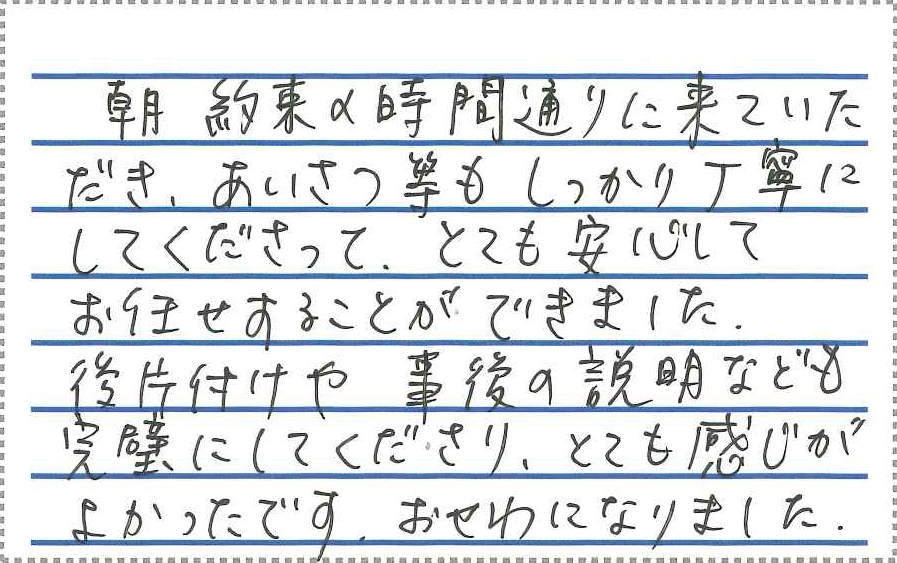 朝 約束の時間通りに来ていた
だき、あいさつ等もしっかり丁寧に
してくださって、とても安心して
お任せすることができました。
後片付けや 事後の説明なども
完璧にしてくださり、とても感じが
よかったです。おせわになりました。